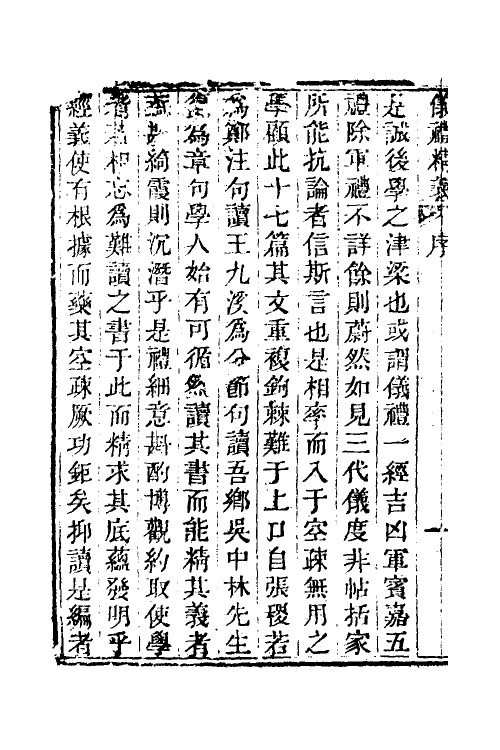 儀禮精義 序 一
是誠後學之津梁也或謂儀禮一經吉凶軍賓嘉五
禮除軍禮不詳餘則蔚然如見三代儀度非帖括家
所能抗論者信斯言也是相率而入于空疎無用之
學顧此十七篇其文重複鉤棘難于上口自張稷若
為鄭注句讀王九溪為分節句讀吾鄉吳中林先生
為章句學人始有可循然讀其書而能精其義者
綺霞則沉潛乎是禮細意斟酌博觀約取使學
者相忘為難讀之書于此而精求其底蘊發明乎
經義使有根據而藥其空疎厥功鉅矣抑讀是編者